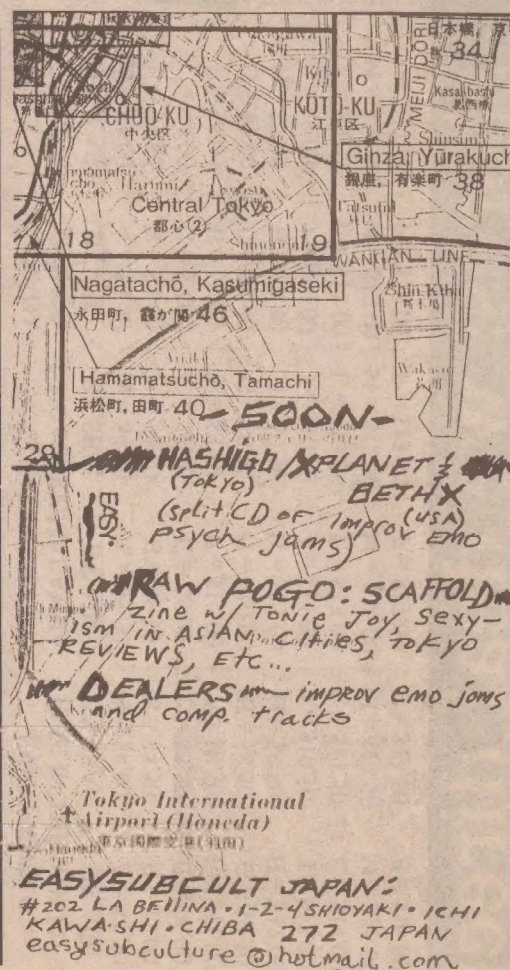 日本橋,
MEIJI DORI
34
Kasaibashi
CHŪŌ-KU
中央区
KŌTŌ-KU
江東区
Ginza, Yūrakuch
銀座, 有楽町 38
Harumi
Central Tokyo
都心(2)
18
19
WANGAN LINE
Shin Kiba
Nagatachō, Kasumigaseki
永田町, 霞が関 46
Hamamatsuchō, Tamachi
浜松町, 田町 40
-SOON-
28
HASHIGO/XPLANET &
(TOKYO)
BETHX
(USA)
(split CD of improv EMO
PSYCH jams)
EASY.
RAW POGO: SCAFFOLD
zine w/ TONIE JOY, sexy-
ism in ASIAN Citiles, TOKYO
REVIEWS, ETC...
DEALERS — improv emo jams
and comp. tracks
Tokyo International
Airport (Haneda)
東京国際空港(羽田)
EASYSUBCULT JAPAN:
#202 LA BELLINA • 1-2-4 SHIOYAKI • ICHI
KAWA-SHI • CHIBA 272 JAPAN
easysubculture@hotmail.com